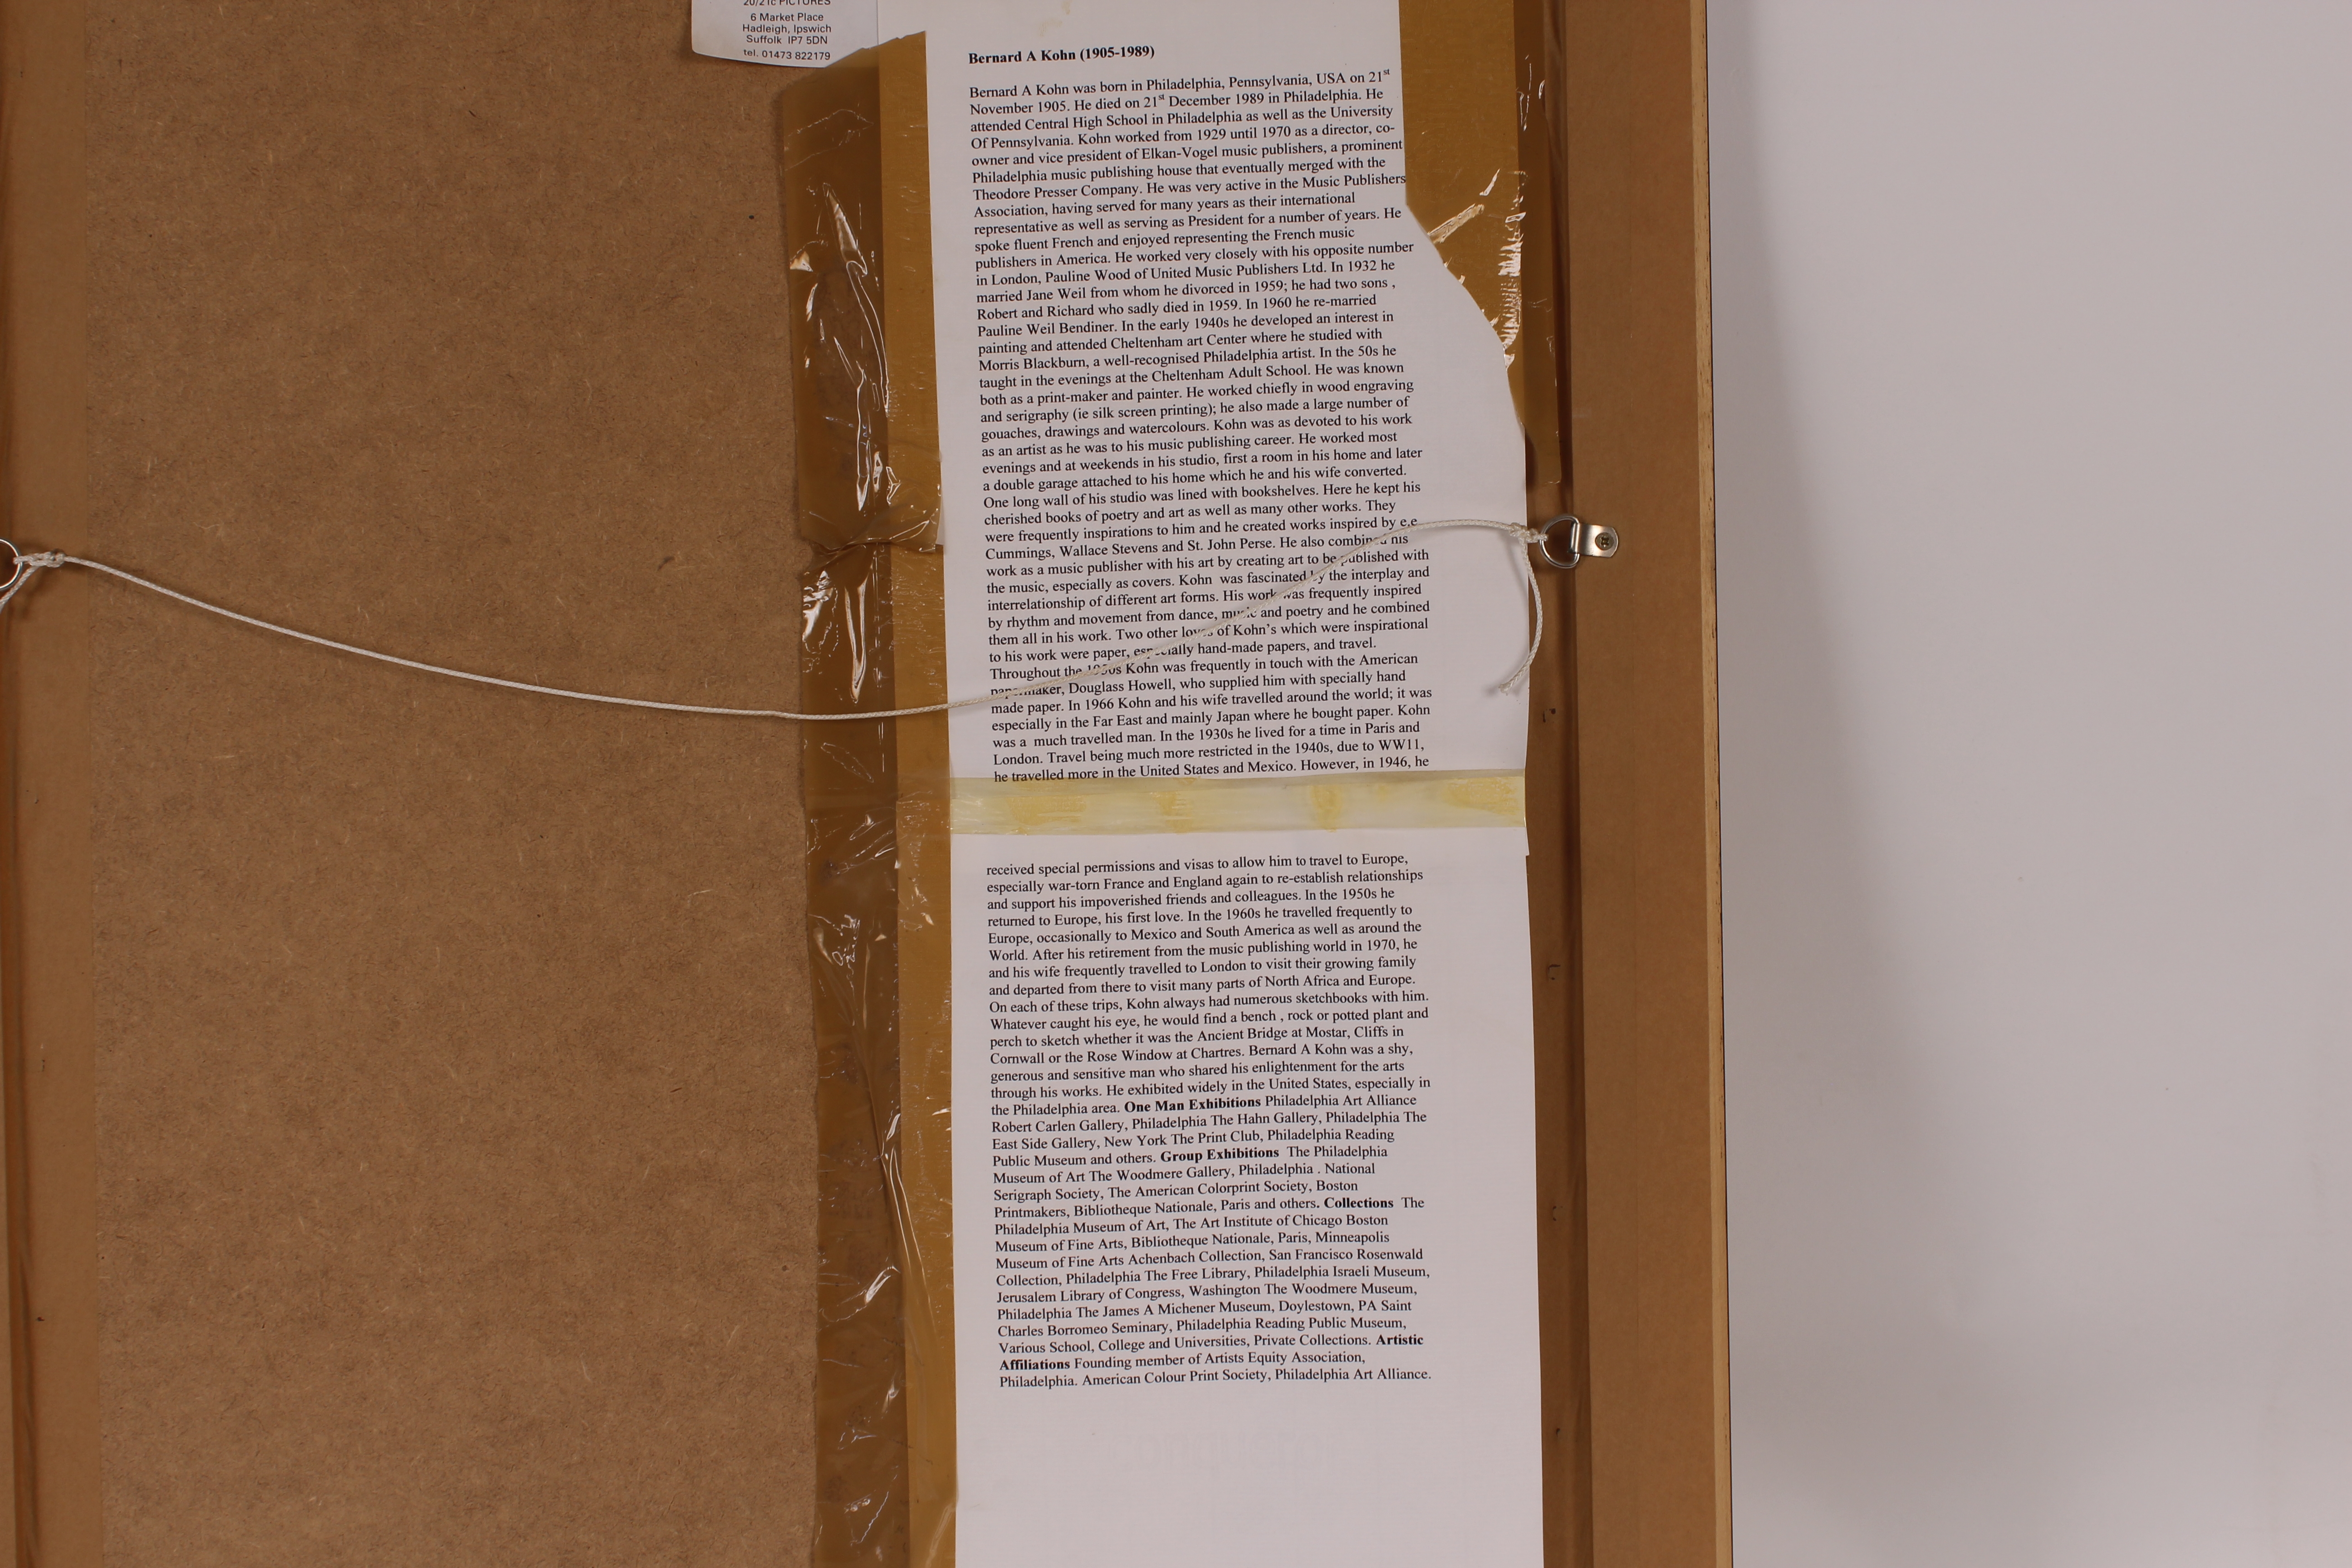 20/21c PICTURES
6 Market Place
Hadleigh, Ipswich
Suffolk IP7 5DN
tel. 01473 822179
Bernard A Kohn (1905-1989)
Bernard A Kohn was born in Philadelphia, Pennsylvania, USA on 21st
November 1905. He died on 21st December 1989 in Philadelphia. He
attended Central High School in Philadelphia as well as the University
Of Pennsylvania. Kohn worked from 1929 until 1970 as a director, co-
owner and vice president of Elkan-Vogel music publishers, a prominent
Philadelphia music publishing house that eventually merged with the
Theodore Presser Company. He was very active in the Music Publishers
Association, having served for many years as their international
representative as well as serving as President for a number of years. He
spoke fluent French and enjoyed representing the French music
publishers in America. He worked very closely with his opposite number
in London, Pauline Wood of United Music Publishers Ltd. In 1932 he
married Jane Weil from whom he divorced in 1959; he had two sons ,
Robert and Richard who sadly died in 1959. In 1960 he re-married
Pauline Weil Bendiner. In the early 1940s he developed an interest in
painting and attended Cheltenham art Center where he studied with
Morris Blackburn, a well-recognised Philadelphia artist. In the 50s he
taught in the evenings at the Cheltenham Adult School. He was known
both as a print-maker and painter. He worked chiefly in wood engraving
and serigraphy (ie silk screen printing); he also made a large number of
gouaches, drawings and watercolours. Kohn was as devoted to his work
as an artist as he was to his music publishing career. He worked most
evenings and at weekends in his studio, first a room in his home and later
a double garage attached to his home which he and his wife converted.
One long wall of his studio was lined with bookshelves. Here he kept his
cherished books of poetry and art as well as many other works. They
were frequently inspirations to him and he created works inspired by e.e
Cummings, Wallace Stevens and St. John Perse. He also combined his
work as a music publisher with his art by creating art to be published with
the music, especially as covers. Kohn was fascinated by the interplay and
interrelationship of different art forms. His work was frequently inspired
by rhythm and movement from dance, music and poetry and he combined
them all in his work. Two other loves of Kohn's which were inspirational
to his work were paper, especially hand-made papers, and travel.
Throughout the 1950s Kohn was frequently in touch with the American
papermaker, Douglass Howell, who supplied him with specially hand
made paper. In 1966 Kohn and his wife travelled around the world; it was
especially in the Far East and mainly Japan where he bought paper. Kohn
was a much travelled man. In the 1930s he lived for a time in Paris and
London. Travel being much more restricted in the 1940s, due to WW11,
he travelled more in the United States and Mexico. However, in 1946, he
received special permissions and visas to allow him to travel to Europe,
especially war-torn France and England again to re-establish relationships
and support his impoverished friends and colleagues. In the 1950s he
returned to Europe, his first love. In the 1960s he travelled frequently to
Europe, occasionally to Mexico and South America as well as around the
World. After his retirement from the music publishing world in 1970, he
and his wife frequently travelled to London to visit their growing family
and departed from there to visit many parts of North Africa and Europe.
On each of these trips, Kohn always had numerous sketchbooks with him.
Whatever caught his eye, he would find a bench , rock or potted plant and
perch to sketch whether it was the Ancient Bridge at Mostar, Cliffs in
Cornwall or the Rose Window at Chartres. Bernard A Kohn was a shy,
generous and sensitive man who shared his enlightenment for the arts
through his works. He exhibited widely in the United States, especially in
the Philadelphia area. One Man Exhibitions Philadelphia Art Alliance
Robert Carlen Gallery, Philadelphia The Hahn Gallery, Philadelphia The
East Side Gallery, New York The Print Club, Philadelphia Reading
Public Museum and others. Group Exhibitions The Philadelphia
Museum of Art The Woodmere Gallery, Philadelphia . National
Serigraph Society, The American Colorprint Society, Boston
Printmakers, Bibliotheque Nationale, Paris and others. Collections The
Philadelphia Museum of Art, The Art Institute of Chicago Boston
Museum of Fine Arts, Bibliotheque Nationale, Paris, Minneapolis
Museum of Fine Arts Achenbach Collection, San Francisco Rosenwald
Collection, Philadelphia The Free Library, Philadelphia Israeli Museum,
Jerusalem Library of Congress, Washington The Woodmere Museum,
Philadelphia The James A Michener Museum, Doylestown, PA Saint
Charles Borromeo Seminary, Philadelphia Reading Public Museum,
Various School, College and Universities, Private Collections. Artistic
Affiliations Founding member of Artists Equity Association,
Philadelphia. American Colour Print Society, Philadelphia Art Alliance.